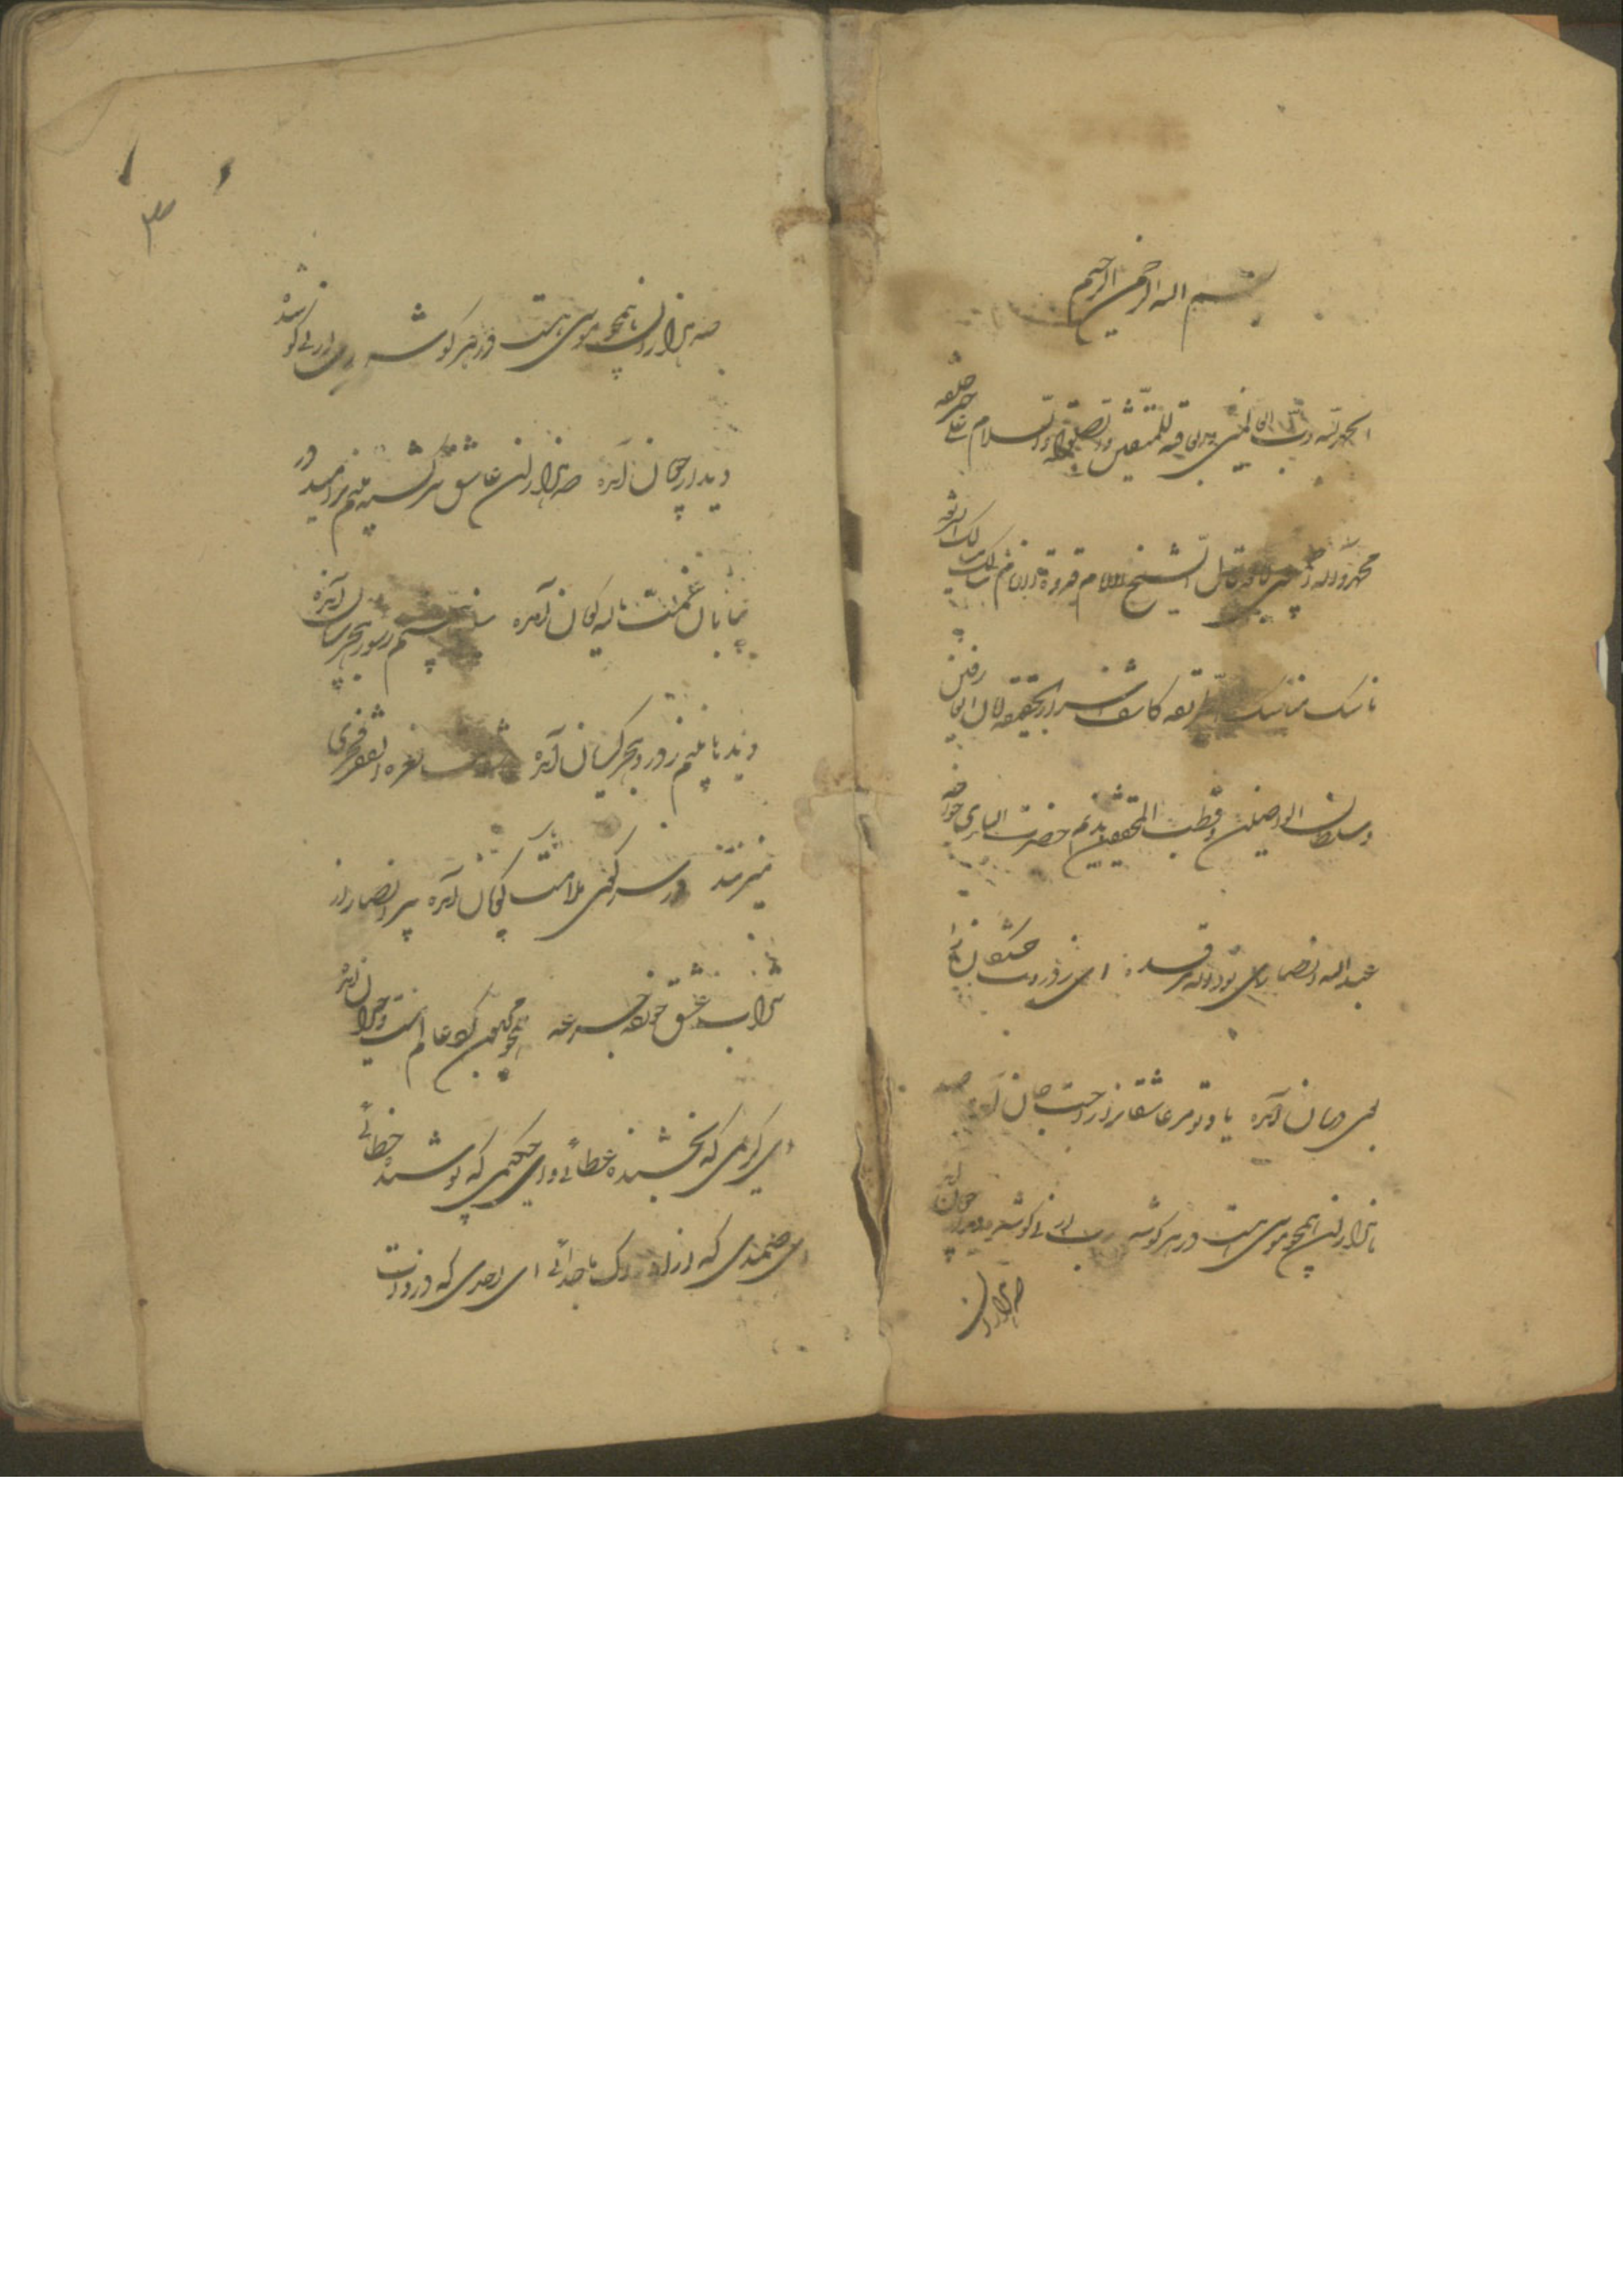 بسم الله الرحمن الرحیم
الحمد لله رب العالمین والعاقبة للمتقین والصلوة والسلام علی خیر خلقه
محمد وآله اجمعین قال الشیخ الامام قدوة الانام سالک مسالک الشریعه
ناسک مناسک الطریقه کاشف اسرار الحقیقه
وسلطان الواصلین وقطب المحققین حضرت الباری خواجه
عبدالله انصاری نور الله مرقده ای ز دردت خستگان را
بوی درمان آمده یاد تو مر عاشقانرا راحت جان آمده صد
هزاران همچو موسی هست در هر گوشه رب ارنی گو شده دیدار جویان آمده
صد هزاران
۳
صد هزاران همچو موسی هست در هر گوشه رب ارنی گو شده
دیدار جویان آمده صد هزاران عاشق سرگشته بینم بر امید در
بیابان غمت الله گویان آمده سینها بینم ز سوز هجر بریان آمده
دیدها بینم ز درد هجر گریان آمده نعره الفقر فخری
میزنند در سر کوی ملامت پیر انصار از
شراب عشق خورده جرعه همچو مجنون گرد عالم مست وحیران آمده
ای کریمی که بخشنده عطائی و ای حکیمی که پوشنده خطائی
ای صمدی که از ادراک ما جدائی ای احدی که در ذات